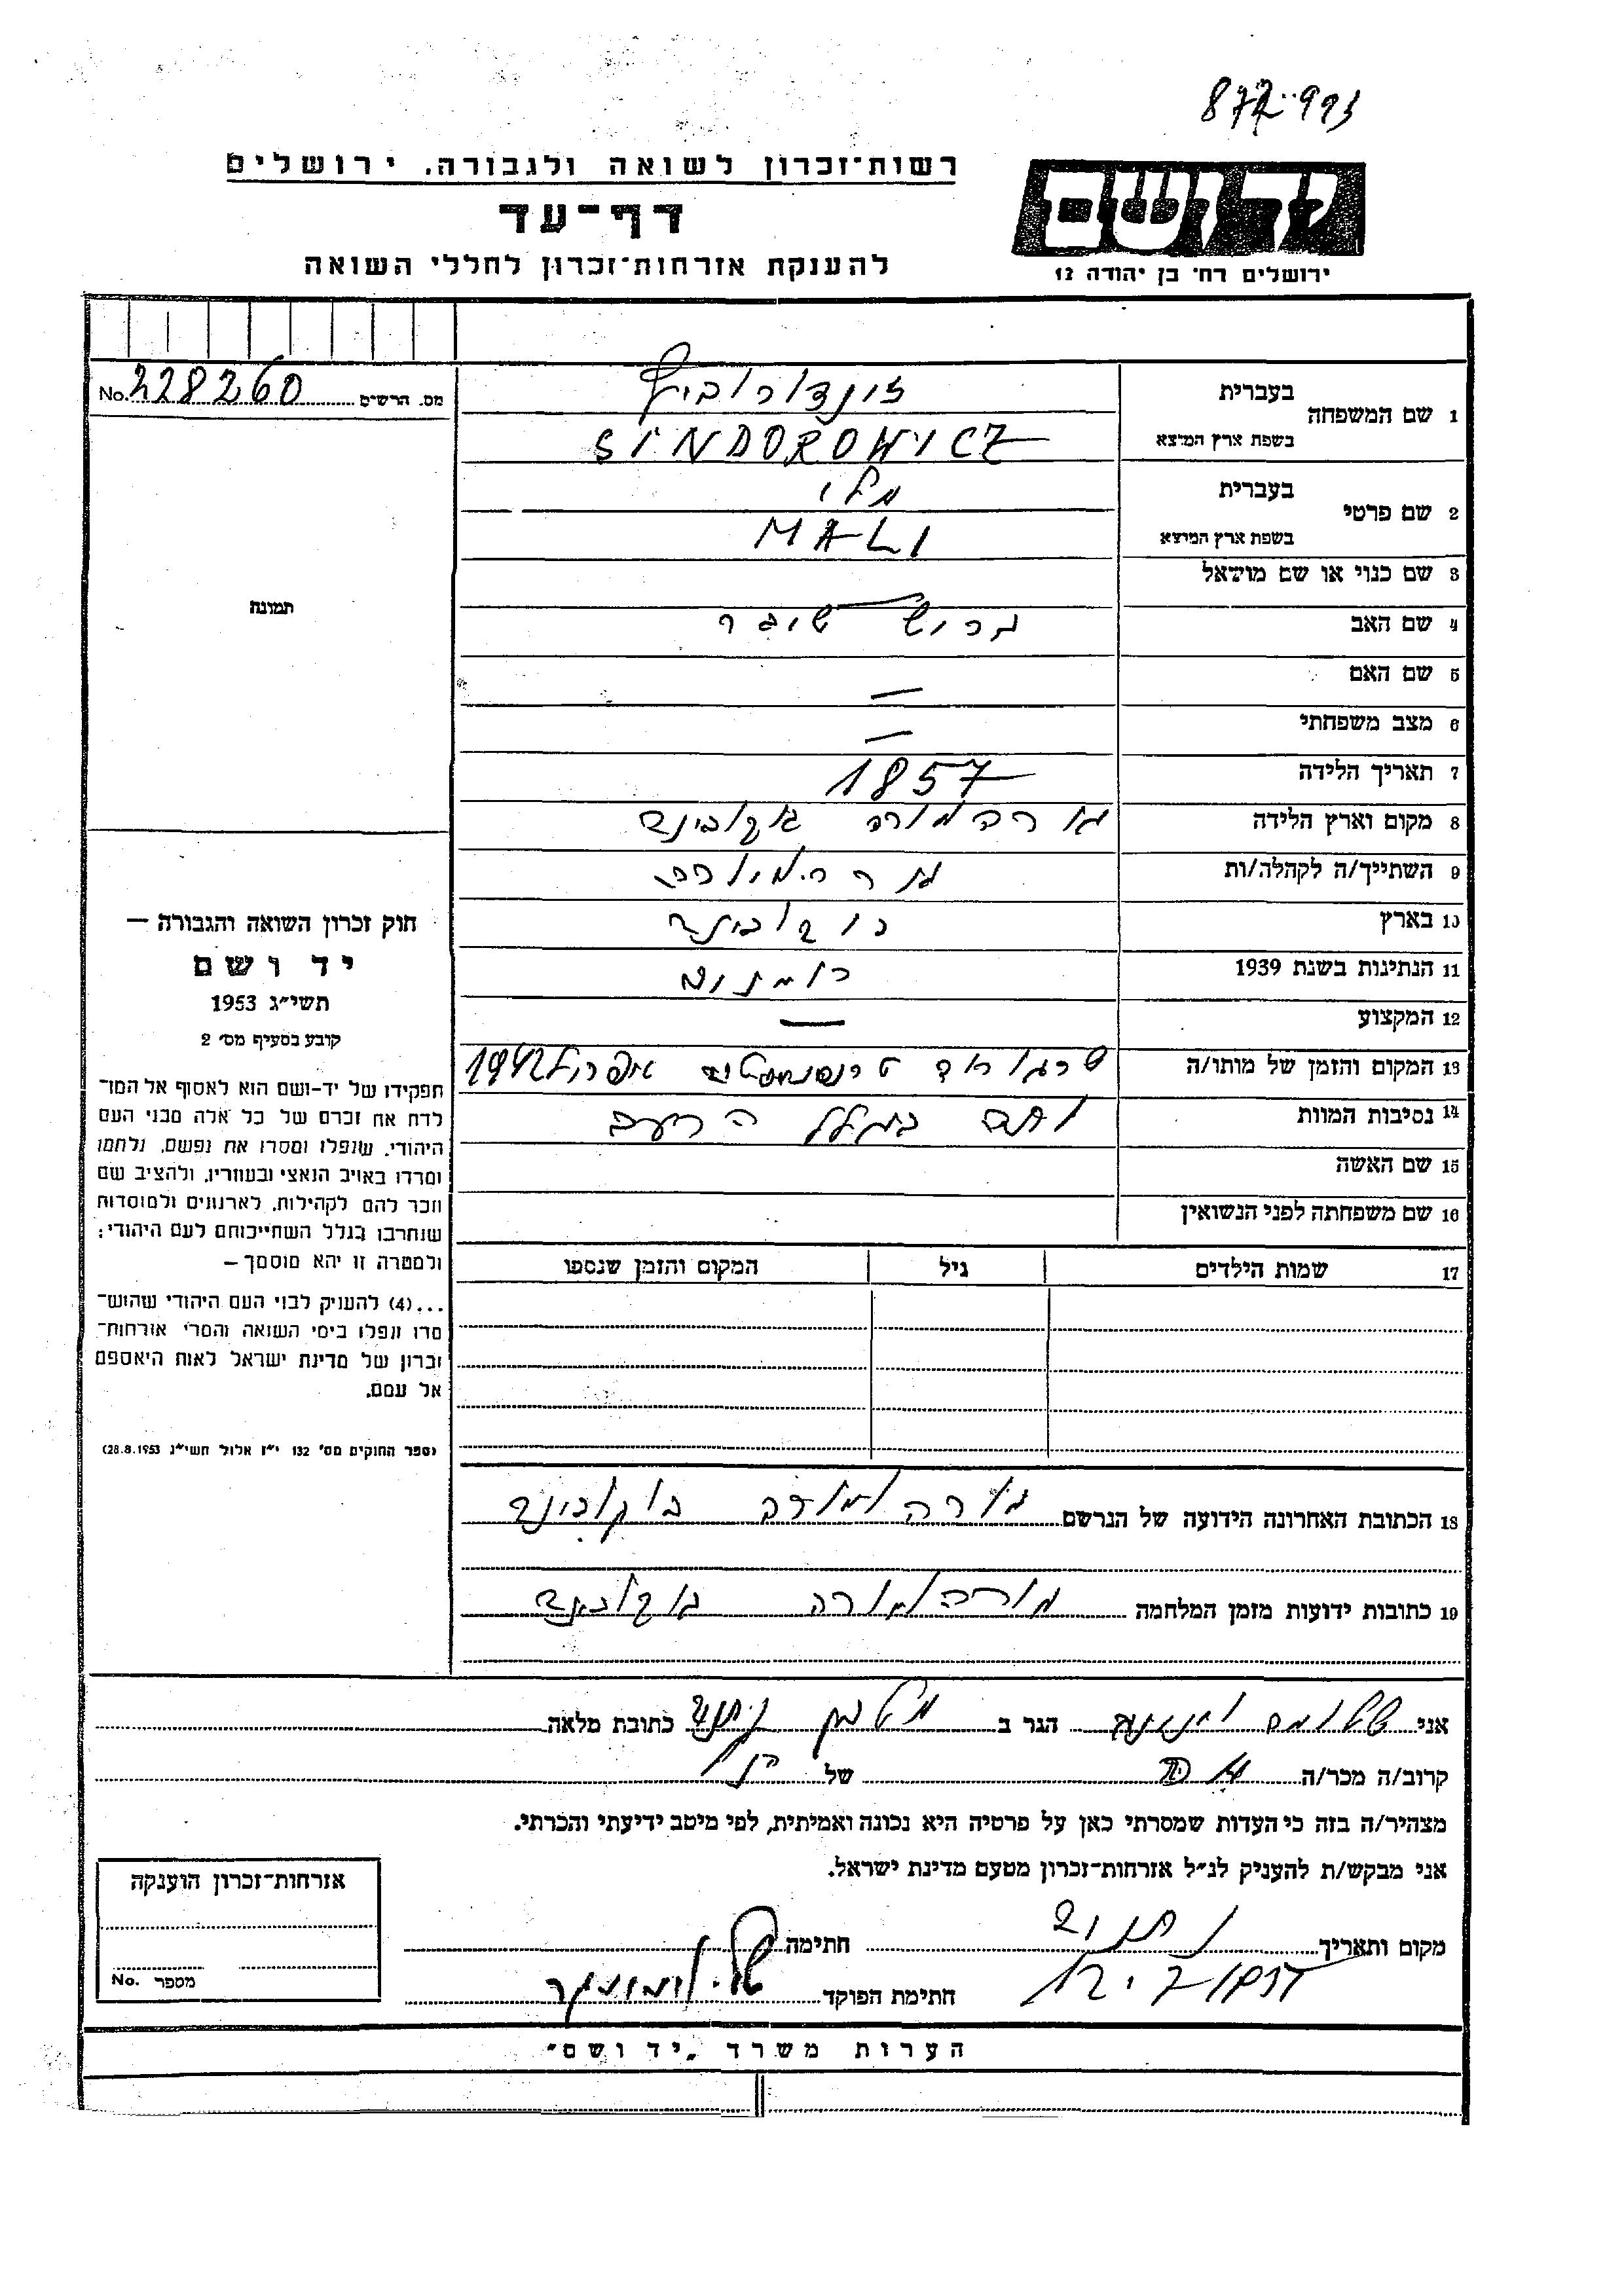 רשות־זכרון לשואה ולגבורה, ירושלים
דף־עד
להענקת אזרחות־זכרון לחללי השואה
יד ושם
ירושלים רח' בן יהודה 12
מס. הרשים No. 228260
תמונה
חוק זכרון השואה והגבורה —
יד ושם
תשי״ג 1953
קובע בסעיף מס׳ 2
תפקידו של יד-ושם הוא לאסוף אל המו־
לדת את זכרם של כל אלה מבני העם
היהודי, שנפלו ומסרו את נפשם, נלחמו
ומרדו באויב הנאצי ובעוזריו, ולהציב שם
וזכר להם לקהילות, לארגונים ולמוסדות
שנחרבו בגלל השתייכותם לעם היהודי;
ולמטרה זו יהא מוסמך —
...(4) להעניק לבני העם היהודי שהוש־
מדו ונפלו בימי השואה והמרי אזרחות־
זכרון של מדינת ישראל לאות היאספם
אל עמם.
(ספר החוקים מס׳ 132 י״ז אלול תשי״ג 28.8.1953)
1 שם המשפחה בעברית זינדורוביץ
בשפת ארץ המוצא SINDOROWICZ
2 שם פרטי בעברית מלי
בשפת ארץ המוצא MALI
3 שם כנוי או שם מושאל
4 שם האב
5 שם האם —
6 מצב משפחתי —
7 תאריך הלידה 1857
8 מקום וארץ הלידה גורה המורה בוקובינה
9 השתייך/ה לקהלה/ות
10 בארץ בוקובינה
11 הנתינות בשנת 1939
12 המקצוע —
13 המקום והזמן של מותו/ה שרגורוד טרנסניסטריה אפריל 1942
14 נסיבות המוות בגלל הרעב
15 שם האשה
16 שם משפחתה לפני הנשואין
17 שמות הילדים גיל המקום והזמן שנספו
18 הכתובת האחרונה הידועה של הנרשם גורה המורה בוקובינה
19 כתובות ידועות מזמן המלחמה גורה המורה בוקובינה
אני הגר ב כתובת מלאה
קרוב/ה מכר/ה של הנ״ל
מצהיר/ה בזה כי העדות שמסרתי כאן על פרטיה היא נכונה ואמיתית, לפי מיטב ידיעתי והכרתי.
אני מבקש/ת להעניק לנ״ל אזרחות־זכרון מטעם מדינת ישראל.
מקום ותאריך נתניה חתימה
חתימת הפוקד
אזרחות־זכרון הוענקה
מספר No.
הערות משרד „יד ושם״